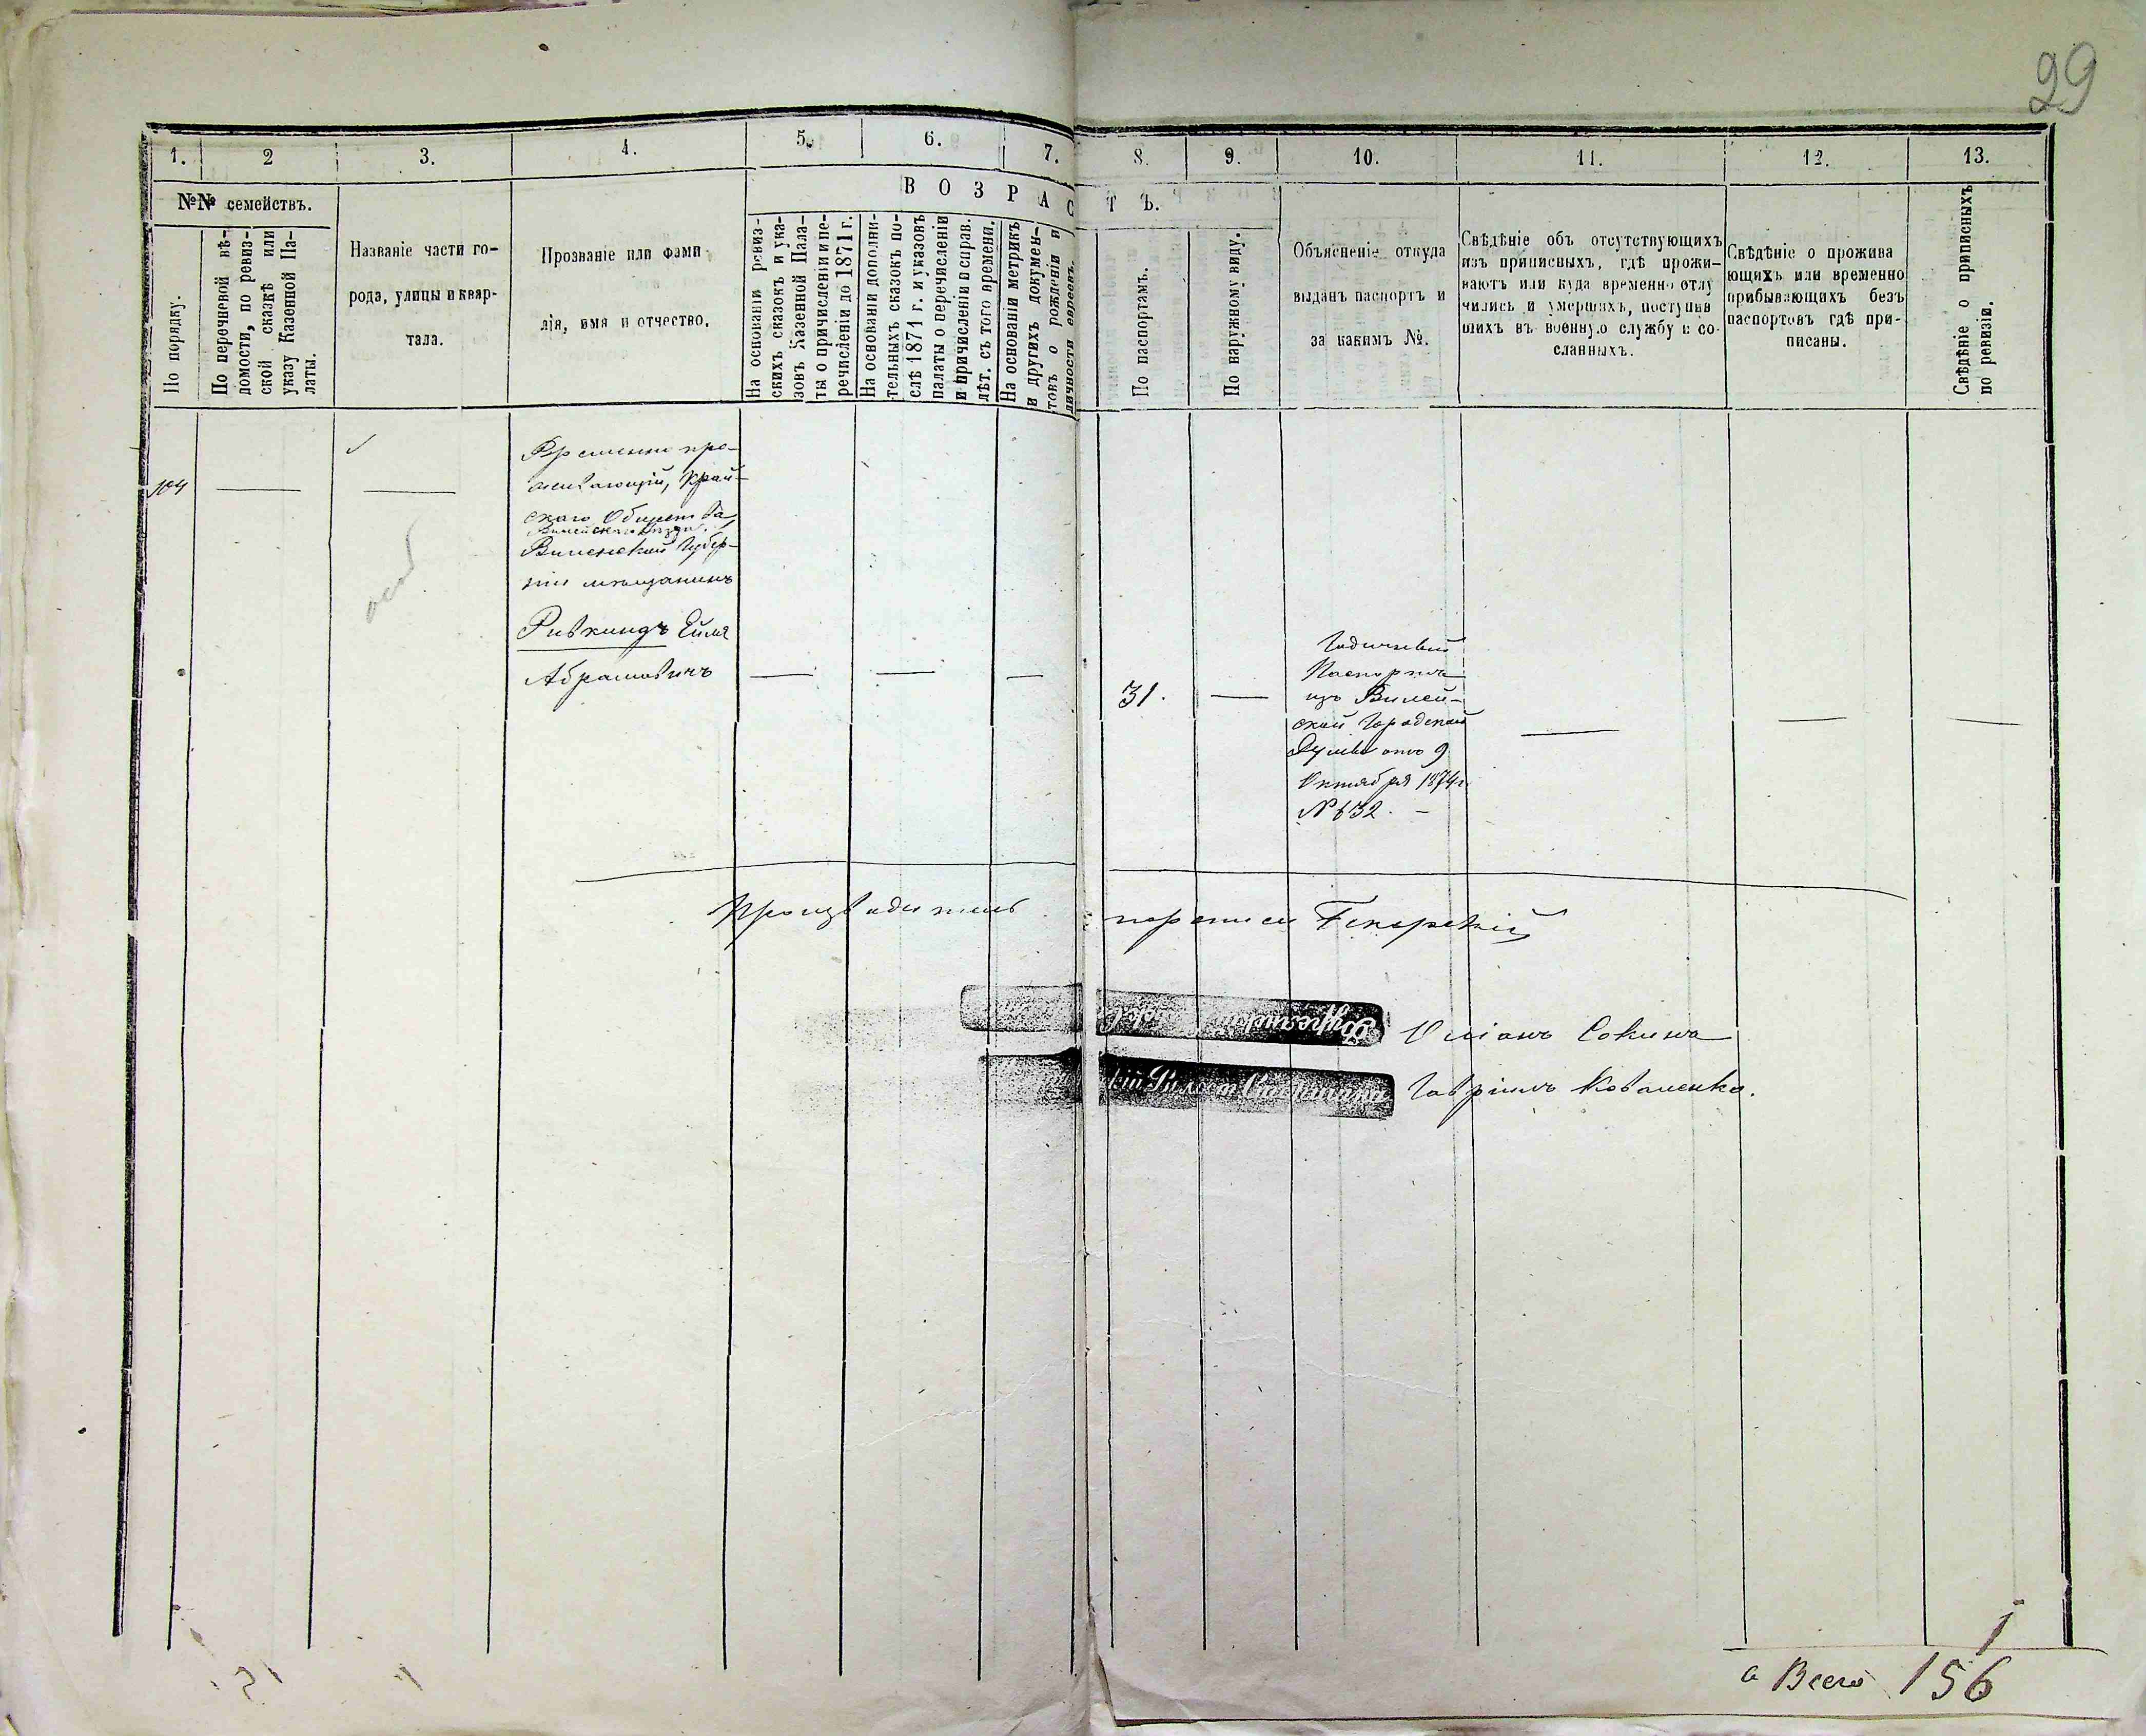 29
1.
2
3.
4.
5.
6.
7.
8.
9.
10.
11.
12.
13.
№№ семействъ.
По порядку.
По перечневой вѣ-
домости, по ревиз-
ской сказкѣ или
указу Казенной Па-
латы.
Названіе части го-
рода, улицы и квар-
тала.
Прозваніе или фами
лія, имя и отчество.
ВОЗРАС
ТЪ.
На основаніи ревиз-
скихъ сказокъ и ука-
зовъ Казенной Пала-
ты о причисленіи и пе-
речисленіи до 1871 г.
На основаніи дополни-
тельныхъ сказокъ по-
слѣ 1871 г. и указовъ
палаты о перечисленіи
и причисленіи и справ.
лѣт. съ того времени.
На основаніи метрикъ
и другихъ докумен-
товъ о рожденіи и
личности евреевъ.
По паспортамъ.
По наружному виду.
Объясненіе откуда
выданъ паспортъ и
за какимъ №.
Свѣдѣніе объ отсутствующихъ
изъ приписныхъ, гдѣ прожи-
ваютъ или куда временно отлу
чились и умершихъ, поступив
шихъ въ военную службу и со-
сланныхъ.
Свѣдѣніе о прожива
ющихъ или временно
прибывающихъ безъ
паспортовъ гдѣ при-
писаны.
Свѣдѣніе о приписныхъ
по ревизіи.
104
Временно про-
живающій, Край-
скаго Общества
Вилейскаго уѣзда
Виленской Губер-
ніи мѣщанинъ
Ривкиндъ
Абрамовичъ
31.
Годичный
Паспортъ
изъ Вилей-
ской Городской
Думы отъ 9
Октября 1874 г.
№ 632. –
Производитель переписи
Гавріилъ Коваленко.
1
а Всего 156